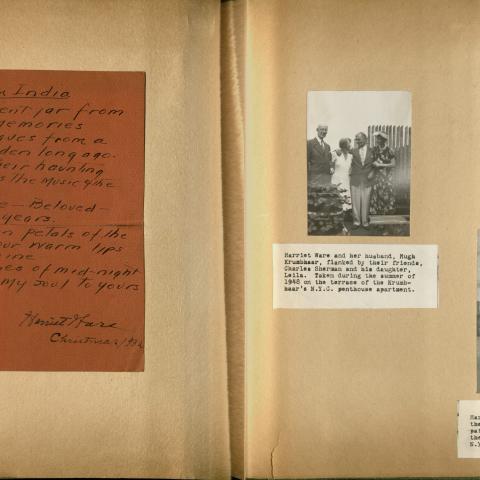 India
ent jar from
memories
ues from a
den long ago.
heir haunting
s the Music of the
e – Beloved –
years.
n petals of the
our warm lips
ine
es of mid-night
My soul to yours
Harriet Ware
Christmas
Harriet Ware and her husband, Hugh
Krumbhaar, flanked by their friends,
Charles Sherman and his daughter,
Leila. Taken during the summer of
1948 on the terrace of the Krumb-
haar's N.Y.C. penthouse apartment.
Har
the
pat
the
N.Y